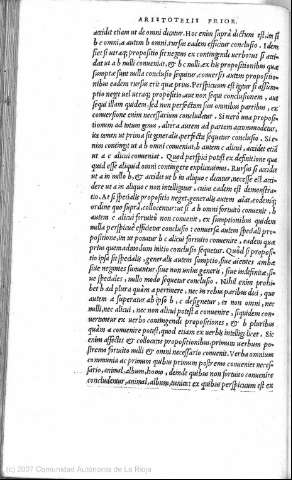 ARISTOTELIS PRIOR.
accidit etiam ut de omni dicatur. Hoc enim suprà dictum est. an si
b c omni, a autem b omni, rursus eadem efficitur conclusio. Idem
fiet si utraq; propositio sit negans ex contingendi verborum si acci-
dat ut a b nulli conueniat, & b c nulli. ex his propositionibus quæ
sumptæ sunt nulla conclusio sequitur, conuersis autem propositio-
nibus eadem rursus erit quæ prius. Perspicuum est igitur si assum-
ptio neget vel utraq; propositio, aut non sequi conclusionem, aut
sequi illam quidem, sed non perfectam sine omnibus partibus, ex
conuersione enim necessarium concluditur. Si uero una propositi-
onem ad totum genus, altera autem ad partem accommodetur,
ita tamen ut prima sit generalis, perfecta sequetur conclusio. Si e-
nim contingit ut a b omni conueniat, b autem c alicui, accidet etiã
ut a c alicui conueniat. Quod perspici potest ex definitione qua
quid esset aliquid omni contingere explicauimus. Rursus si accidit
ut a in nullo b, & accidit ut b in aliquo c dicatur, necesse est acci-
dere ut a in aliquo c non intelligatur, cuius eadem est demonstra-
tio. At si specialis propositio neget, generalis autem aiat, eodemq;
ordine quo suprà collocentur: ut si a b omni fortuitò conuenit, b
autem c alicui fortuitò non conuenit, ex sumptionibus quidem
nulla perspicuè efficitur conclusio: conuersa autem speciali pro-
positione, in ut ponatur b c alicui fortuitò conuenire, eadem quæ
prius quemadmodum initio conclusio sequetur. Quod si proposi-
tio ipsa sit specialis, generalis autem sumptio, siue aientes ambæ
siue negantes sumantur, siue non unius generis, siue indefinitæ, si-
ue speciales, nullo modo sequetur conclusio. Nihil enim prohi-
bet b ad plura quàm a pertinere, nec in rebus paribus dici, qua
autem a superatur ab ipso b, c designetur, ei non omni, nec
nulli, nec alicui, nec non alicui potest a conuenire, siquidem con-
uertuntur ex verbo contingendi propositiones, & b pluribus
quàm a conuenire potest, quod etiam ex verbis intelligi licet. Sic
enim affectis & collocatis propositionibus primum verbum po-
stremo fortuitò nulli & omni necessariò conuenit. Verba omnium
communia ac primum quibus primum postremo conuenire neces-
sariò, animal, album, homo, deinde quibus non fortuitò conuenire
concludentur, animal, album, uestis: ex quibus perspicuum est ex
(c) 2007 Comunidad Autónoma de La Rioja